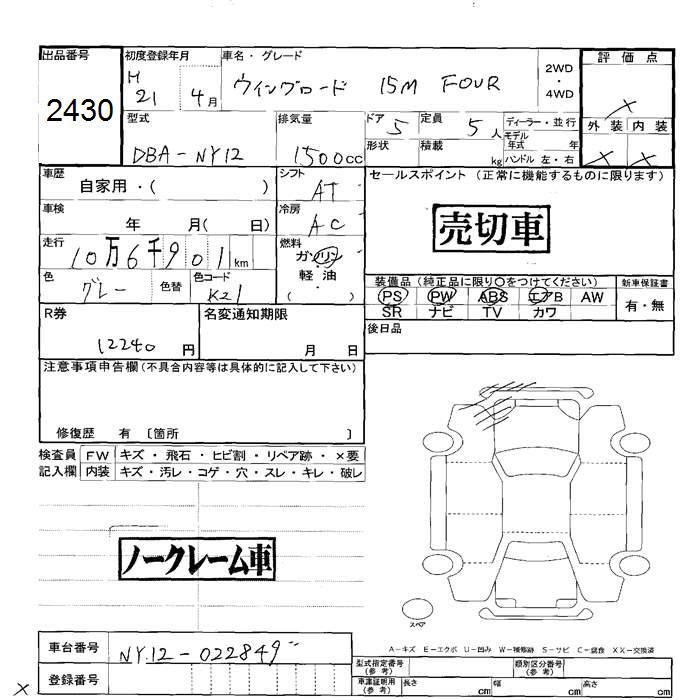 出品番号
2430
初度登録年月
H 21 4月
車名・グレード
ウイングロード 15M FOUR
2WD・4WD
評価点
×
外装 内装
× ×
型式
DBA-NY12
排気量
1500cc
ドア 5
形状
定員 5人
積載 kg
ディーラー・並行
モデル年式 年
ハンドル 左・右
車歴
自家用・( )
シフト
AT
セールスポイント (正常に機能するものに限ります)
売切車
車検
年 月( 日)
冷房
AC
走行
10万6千901km
燃料
ガソリン・軽油
( )
色
グレー
色替
色コード
K21
装備品 (純正品に限り○をつけてください)
PS PW ABS エアB AW
SR ナビ TV カワ
新車保証書
有・無
R券
12240円
名変通知期限
月 日
後日品
注意事項申告欄(不具合内容等は具体的に記入して下さい)
修復歴 有 〔箇所 〕
検査員記入欄
FW キズ・飛石・ヒビ割・リペア跡・×要
内装 キズ・汚レ・コゲ・穴・スレ・キレ・破レ
ノークレーム車
スペア
A-キズ E-エクボ U-凹み W-補修跡 S-サビ C-腐食 XX-交換済
車台番号
NY12-022849
登録番号
×
型式指定番号(参考)
類別区分番号(参考)
車庫証明用(参考)
長さ cm 幅 cm 高さ cm